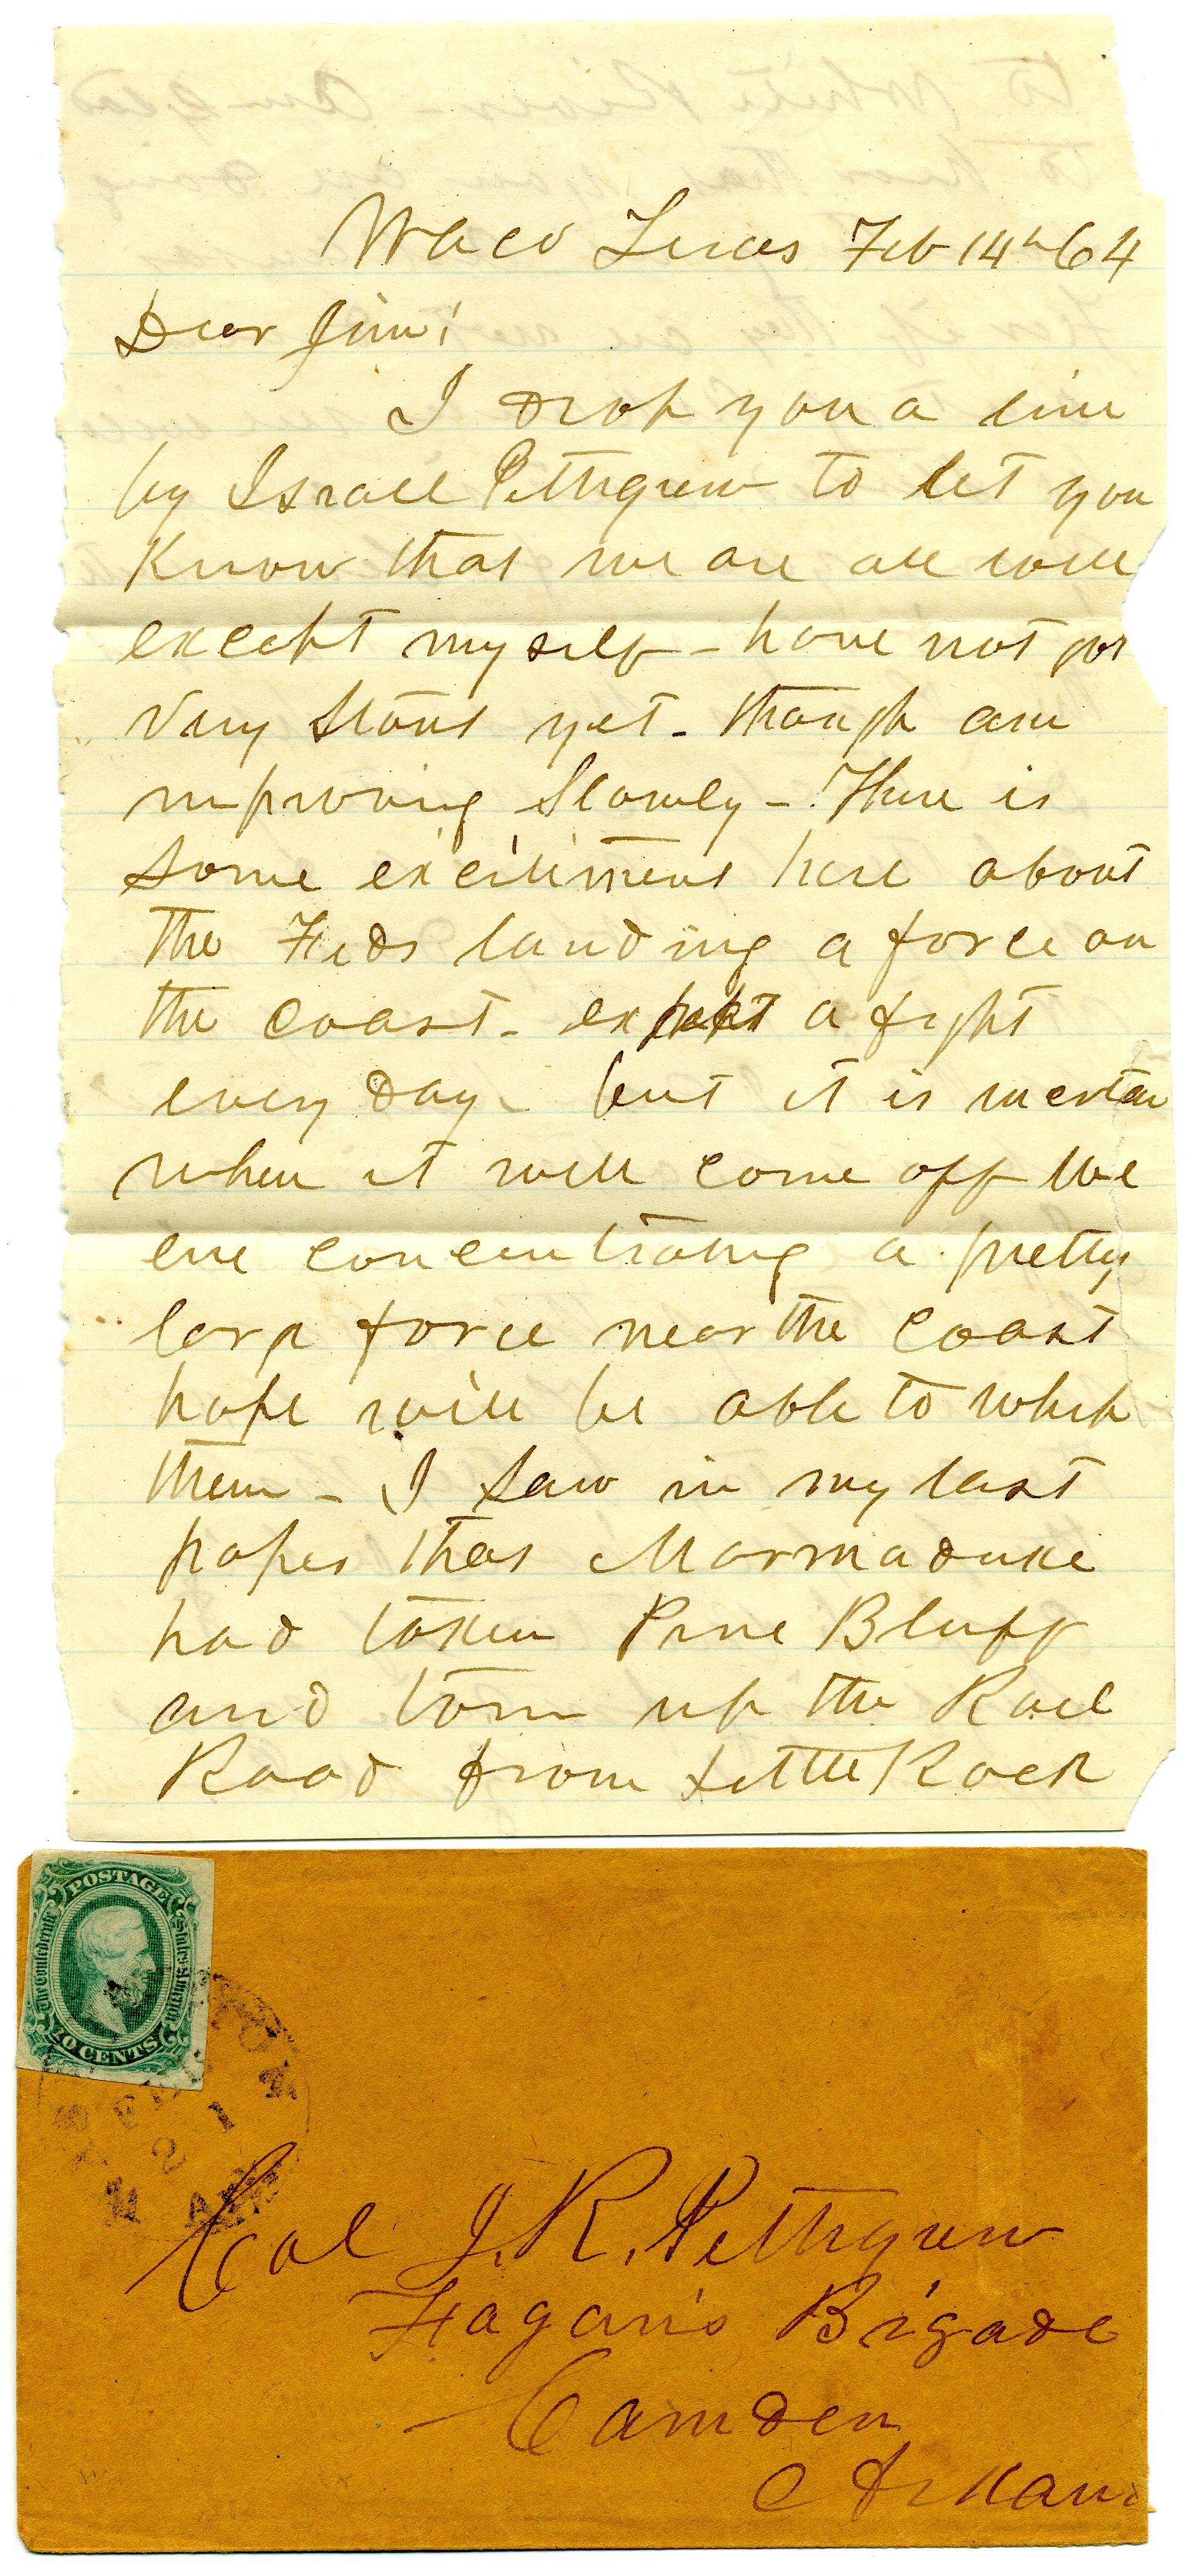 Waco Texas Feb 14th 64
Dear Jim!
I drop you a line
by Israel Pettigrew to let you
Know that we are all well
except myself - have not got
very stout yet - though am
improving Slowly - There is
Some excitement here about
the Feds landing a force on
the coast - expect a fight
every day - but it is uncertain
when it will come off We
are concentrating a pretty
large force near the coast
hope will be able to whip
them - I saw in my last
paper that Marmaduke
had taken Pine Bluff
and torn up the Rail
Road from Little Rock
POSTAGE
The Confederate States of America
10 CENTS
2 1
Col J. R. Pettigrew
Fagan's Brigade
Camden
Arkans